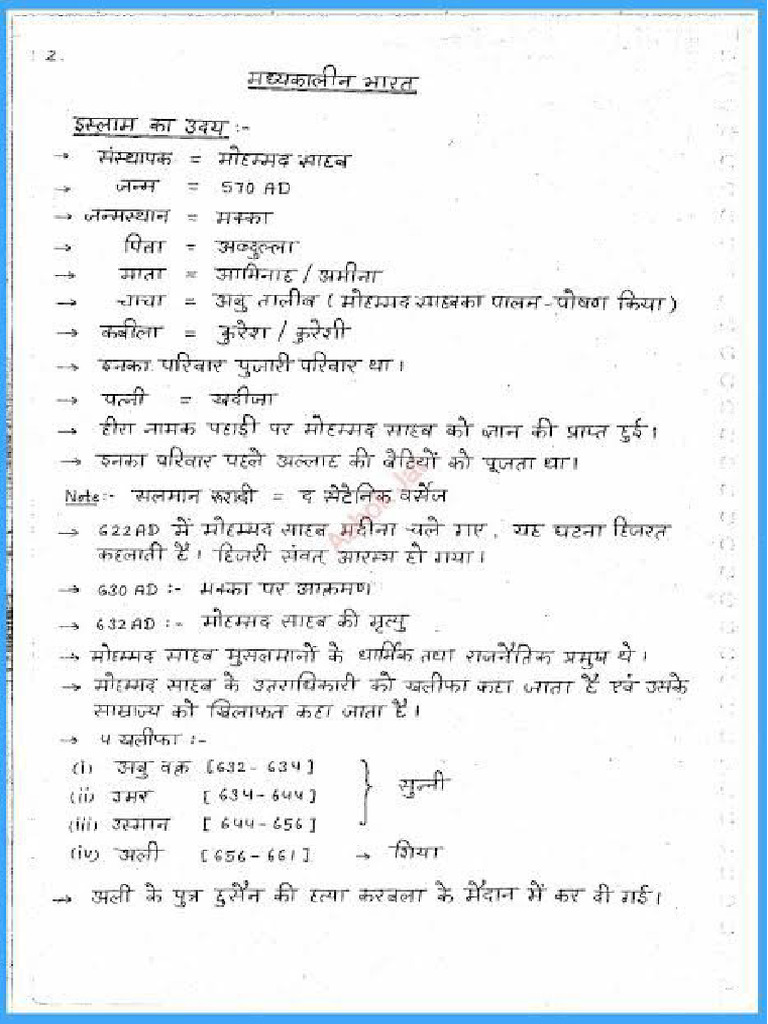 2.
मध्यकालीन भारत
इस्लाम का उदय :-
→ संस्थापक = मोहम्मद साहब
→ जन्म = 570 AD
→ जन्मस्थान = मक्का
→ पिता = अब्दुल्ला
→ माता = आमिनाह / अमीना
→ चाचा = अबु तालीब ( मोहम्मद साहबका पालन-पोषण किया )
→ कबीला = कुरेश / कुरेशी
→ इनका परिवार पुजारी परिवार था।
→ पत्नी = खदीजा
→ हीरा नामक पहाड़ी पर मोहम्मद साहब को ज्ञान की प्राप्त हुई।
→ इनका परिवार पहले अल्लाह की बेटियों को पूजता था।
Note:- सलमान रूशदी = द सेटेनिक वर्सेज
→ 622 AD में मोहम्मद साहब मदीना चले गए, यह घटना हिजरत
कहलाती है। हिजरी संवत् आरम्भ हो गया।
→ 630 AD :- मक्का पर आक्रमण
→ 632 AD :- मोहम्मद साहब की मृत्यु
→ मोहम्मद साहब मुसलमानों के धार्मिक तथा राजनैतिक प्रमुख थे।
→ मोहम्मद साहब के उतराधिकारी को खलीफा कहा जाता है एवं उसके
साम्राज्य को खिलाफत कहा जाता है।
→ 4 खलीफा :-
(i) अबु बक्र [632 - 634]
(ii) उमर [634 - 644] } सुन्नी
(iii) उस्मान [644 - 656]
(iv) अली [656 - 661] → शिया
→ अली के पुत्र हुसैन की हत्या करबला के मैदान में कर दी गई।